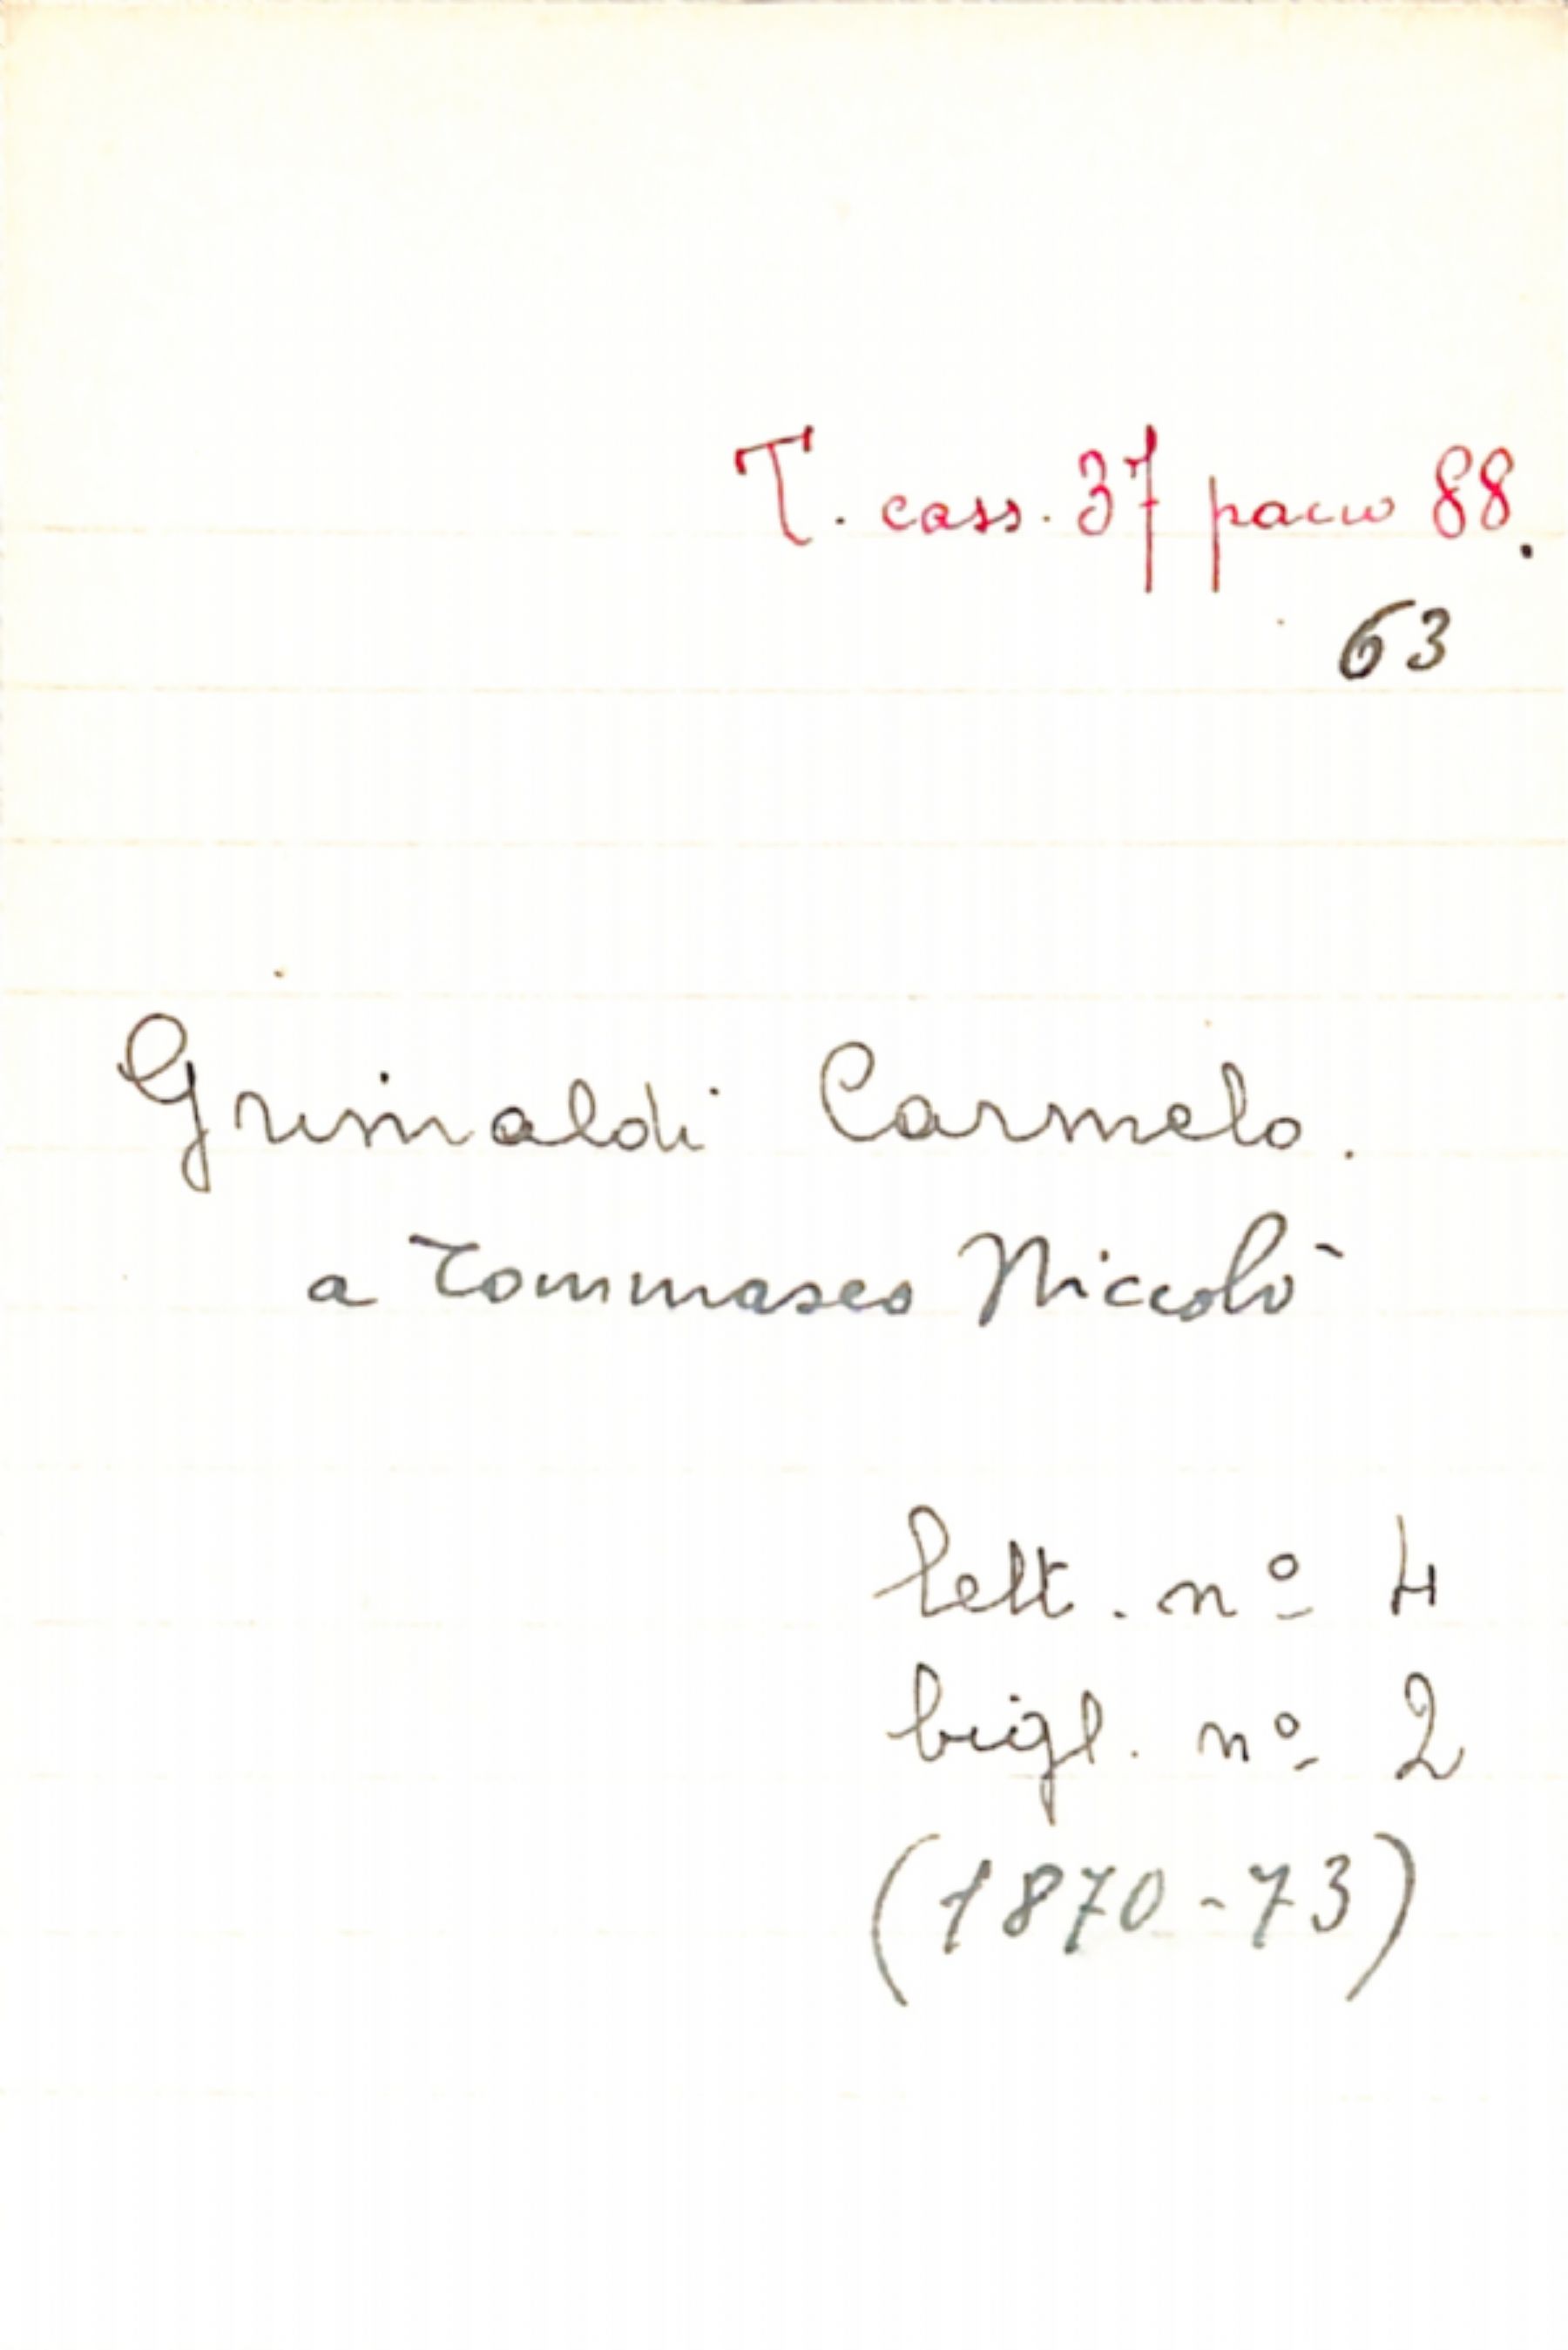 T. cass. 37 pacco 88.
63
Grimaldi Carmelo.
a Tommaseo Niccolò
lett. nº 4
bigl. nº 2
(1870-73)